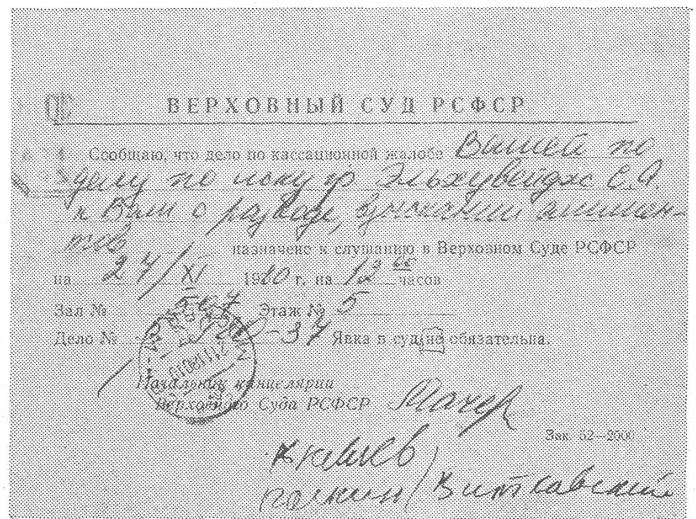 ВЕРХОВНЫЙ СУД РСФСР
Сообщаю, что дело по кассационной жалобе Вашей по
делу по иску гр. Эльхувейджс С.А.
к Вам о разводе, взыскании алимен-
тов назначено к слушанию в Верховном Суде РСФСР
на 27/XI 1980 г. на 12 00 часов
Зал № 507 Этаж № 5
Дело № -37 Явка в суд не обязательна.
Начальник канцелярии
Верховного Суда РСФСР
Зак. 52—2000